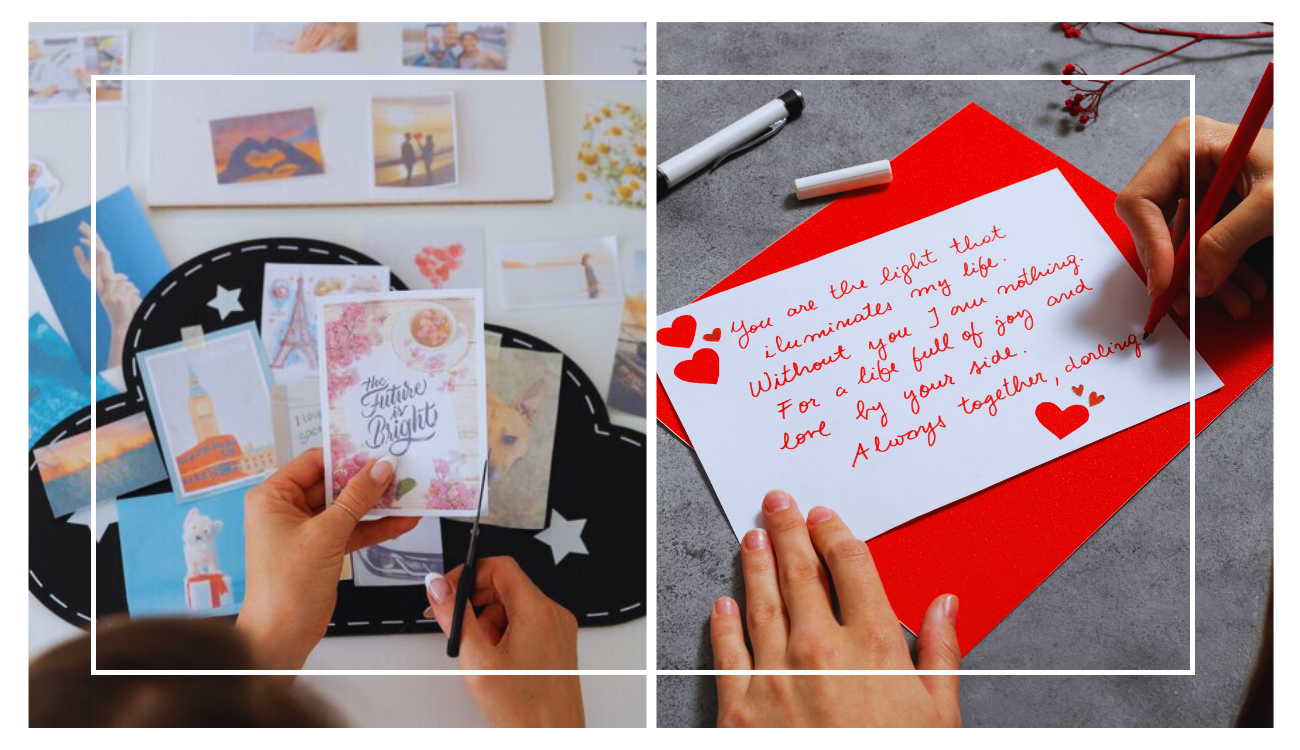 the
Future
is
Bright
I LOVE
You are the light that
iluminates my life.
Without you I am nothing.
For a life full of joy and
love by your side.
Always together, darling